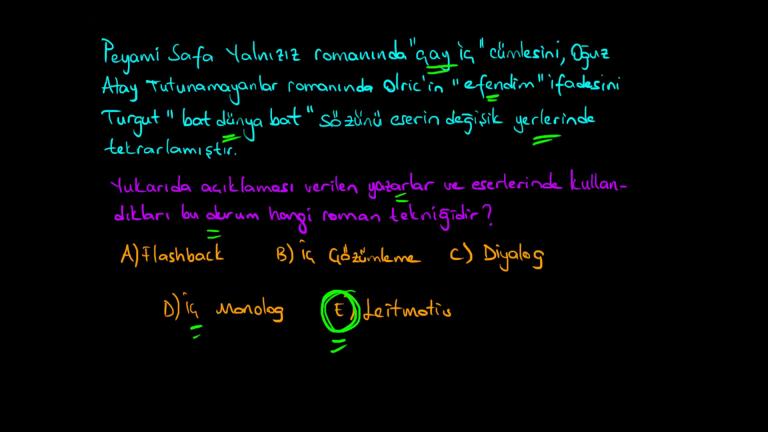 Peyami Safa Yalnızız romanında "çay iç" cümlesini, Oğuz
Atay Tutunamayanlar romanında Olric'in "efendim" ifadesini
Turgut "bat dünya bat" sözünü eserin değişik yerlerinde
tekrarlamıştır.
Yukarıda açıklaması verilen yazarlar ve eserlerinde kullan-
dıkları bu durum hangi roman tekniğidir?
A) Flashback B) İç Çözümleme C) Diyalog
D) İç Monolog E) Leitmotiv